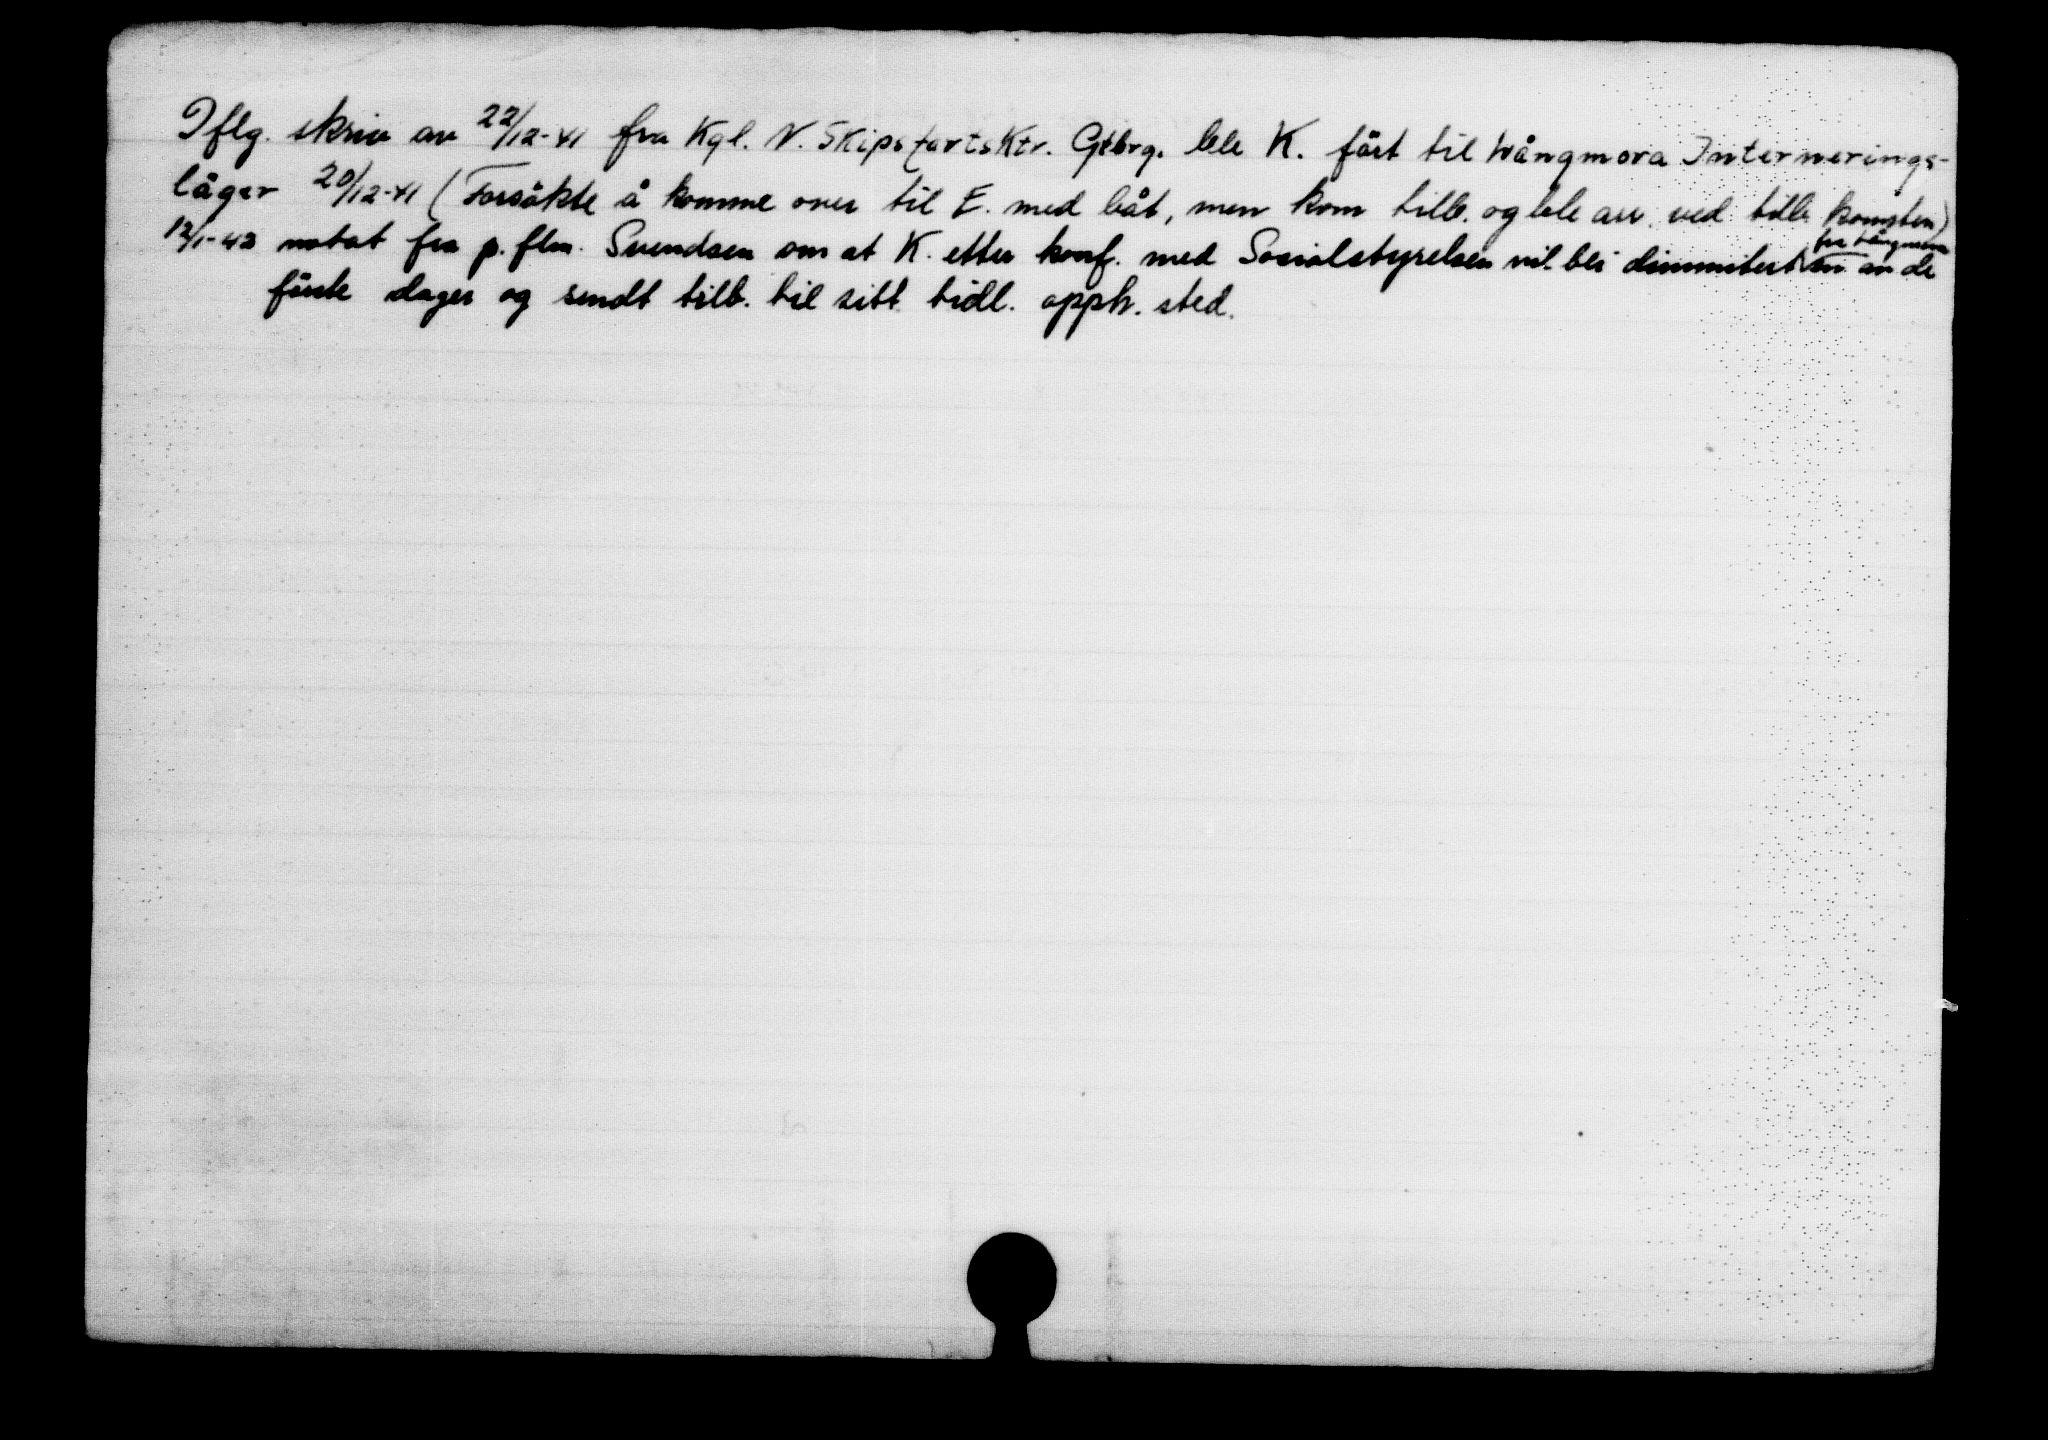 Iflg. skriv av 22/12-41 fra Kgl. N. SkipsfartsKtr. Gtbrg. ble K. ført til Långmora Internerings-
läger 20/12-41 (Forsøkte å komme over til E. med båt, men kom tilb. og ble arr. ved tilb. komsten)
12/1-42 notat fra p. flm. Svendsen om at K. etter konf. med Socialstyrelsen vil bli dimmitert fra Långmora en av de
første dager og sendt tilb. til sitt tidl. opph. sted.